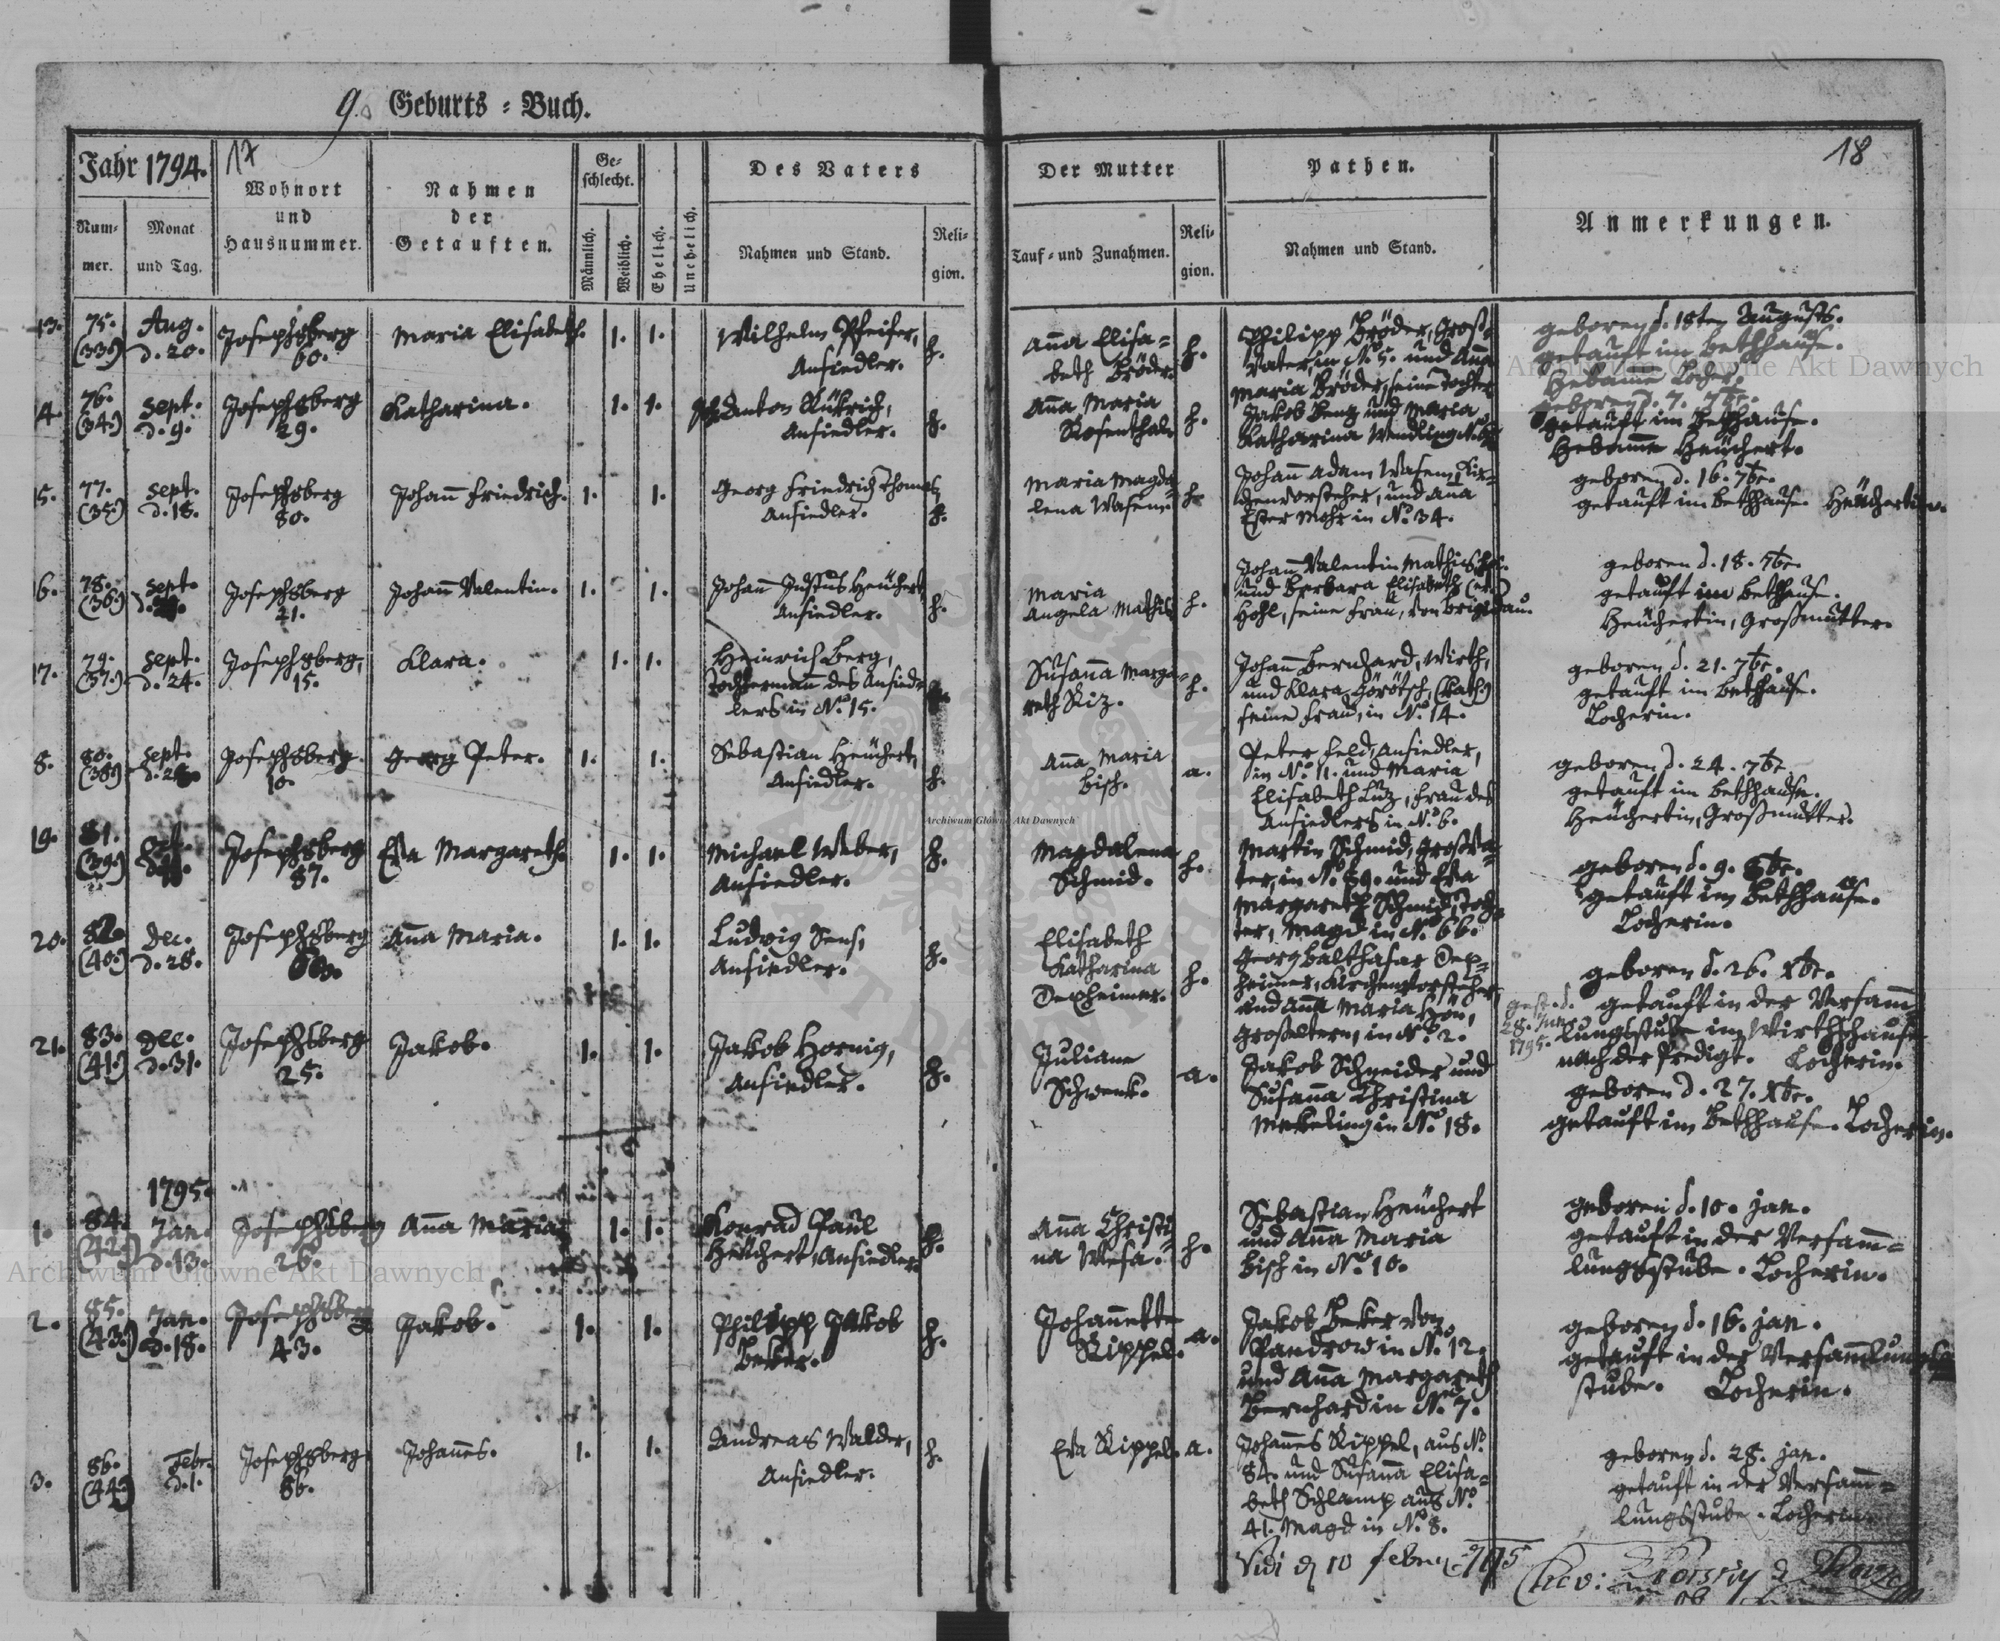 9. Geburts = Buch.
Jahr 1794.
17
Num=
mer.
Monat
und Tag.
Wohnort
und
Hausnummer.
Nahmen
der
Getauften.
Ge=
schlecht.
Männlich.
Weiblich.
Ehelich.
Unehelich.
Des Vaters
Nahmen und Stand.
Reli=
gion.
Der Mutter
Tauf= und Zunahmen.
Reli=
gion.
Pathen.
Nahmen und Stand.
Anmerkungen.
18
13.
75.
(33)
Aug.
d. 20.
Josephsberg
60.
Maria Elisabeth.
1.
1.
Wilhelm Pfeifer,
Ansiedler.
h.
Anna Elisa=
beth Bröder.
h.
Philipp Bröder, Groß=
vater, in No. 5. und Anna
Maria Bröder, seine Tochter
geboren d. 18ten Augusts.
getauft im Bethhause.
Hebamme Locher.
4.
76.
(34.)
Sept.
d. 9.
Josephsberg
29.
Katharina.
1.
1.
Anton
Ansiedler.
h.
Anna Maria
Rosenthal.
h.
Jakob Benz und Maria
Katharina Wendling
geboren d. 7. 7br.
getauft im Bethhause.
Hebamme Heüchert.
5.
77.
(35.)
Sept.
d. 18.
Josephsberg
80.
Johann Friedrich.
1.
1.
Georg Friedrich Thomas,
Ansiedler.
h.
Maria Magda=
lena Wasem.
h.
Johann Adam Wasem, Kir=
chenvorsteher, und Ana
Ester Mohr in No. 34.
geboren d. 16. 7br.
getauft im Bethhause. Heüchertin.
6.
78.
(36)
Sept.
Josephsberg
21.
Johann Valentin.
1.
1.
Johann Justus Heüchert,
Ansiedler.
h.
Maria
Angela Mathis
h.
Johann Valentin Mathis
und Barbara Elisabeth
Hohl, seine Frau, von Brigidau.
geboren d. 18. 7br.
getauft im Bethhause.
Heüchertin, Großmutter.
17.
79.
(37.)
Sept.
d. 24.
Josephsberg,
15.
Klara.
1.
1.
Heinrich Berg,
Tochtermann des Ansied=
lers in No. 15.
Susanna Marga=
reth Riz.
h.
Johann Bernhard, Wirth,
und Klara Görötsch, (Kath.)
seine Frau, in No. 14.
geboren d. 21. 7br.
getauft im Bethhause.
Locherin.
8.
80.
(38)
Sept.
Josephsberg
10.
Georg Peter.
1.
1.
Sebastian Heüchert,
Ansiedler.
h.
Anna Maria
Bisch.
a.
Peter Feld, Ansiedler,
in No. 11. und Maria
Elisabeth Luz, Frau des
Ansiedlers in No. 6.
geboren d. 24. 7br.
getauft im Bethhause.
Heüchertin, Großmutter.
19.
81.
(39)
Oct.
Josephsberg
87.
Eva Margareth.
1.
1.
Michael Weber,
Ansiedler.
h.
Magdalena
Schmid.
h.
Martin Schmid, Großva=
ter, in No. 89. und Eva
Margareth Schmid, Toch=
ter, Magd in No. 66.
geboren d. 9. 8br.
getauft im Bethhause.
Locherin.
20.
82.
(40.)
Dec.
d. 28.
Josephsberg
Anna Maria.
1.
1.
Ludwig Sens,
Ansiedler.
h.
Elisabeth
Katharina
Depheimer.
h.
Georg Balthasar Dep=
heimer, Kirchenvorsteher,
und Anna Maria Hön,
Großeltern, in No. 2.
geboren d. 26. Xbr.
getauft in der Versamm=
lungsstube im Wirthshause
nach der Predigt. Locherin.
gest. d.
28. Jun.
1795.
21.
83.
(41.)
Dec.
d. 31.
Josephsberg
25.
Jakob.
1.
1.
Jakob Hornig,
Ansiedler.
h.
Juliane
Schwenk.
a.
Jakob Schneider und
Susanna Christina
Mekeling in No. 18.
geboren d. 27. Xbr.
getauft im Bethhause. Locherin.
1795.
1.
84.
(42.)
Jan.
d. 13.
Josephsberg
26.
Anna Maria.
1.
1.
Konrad Paul
Heüchert, Ansiedler.
h.
Anna Christi=
na Wefa.
h.
Sebastian Heüchert
und Anna Maria
Bisch in No. 10.
geboren d. 10. Jan.
getauft in der Versamm=
lungsstube. Locherin.
2.
85.
(43.)
Jan.
d. 18.
Josephsberg
43.
Jakob.
1.
1.
Philipp Jakob
Beker.
h.
Johannette
Rippel.
a.
Jakob Beker von
Pandrow in No. 12.
und Anna Margareth
Bernhard in No. 7.
geboren d. 16. Jan.
getauft in der Versammlungs=
stube. Locherin.
3.
86.
(44.)
Febr.
d. 1.
Josephsberg
86.
Johannes.
1.
1.
Andreas Walder,
Ansiedler.
h.
Eva Rippel.
a.
Johannes Rippel, aus No.
84. und Susanna Elisa=
beth Schlamp aus No.
41. Magd in No. 8.
geboren d. 28. Jan.
getauft in der Versamm=
lungsstube. Locherin.
Vidi d 10 febru 1795
Archiwum Główne Akt Dawnych
Archiwum Główne Akt Dawnych
Archiwum Główne Akt Dawnych